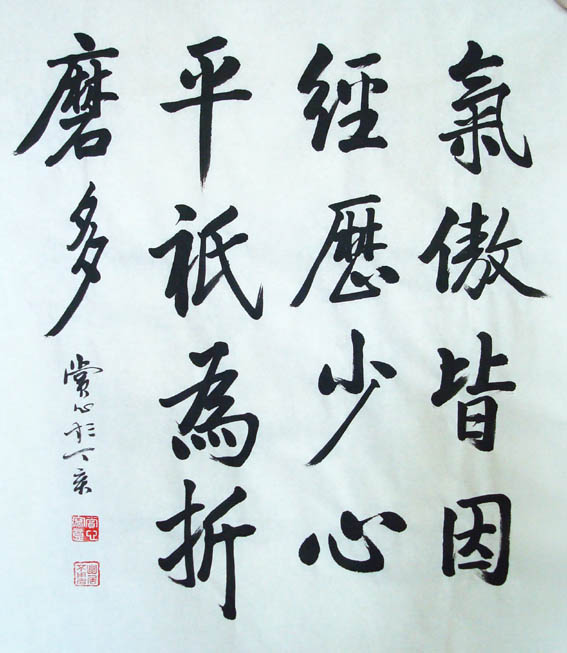 氣傲皆因
經歷少心
平祇為折
磨多
賞心於丁亥